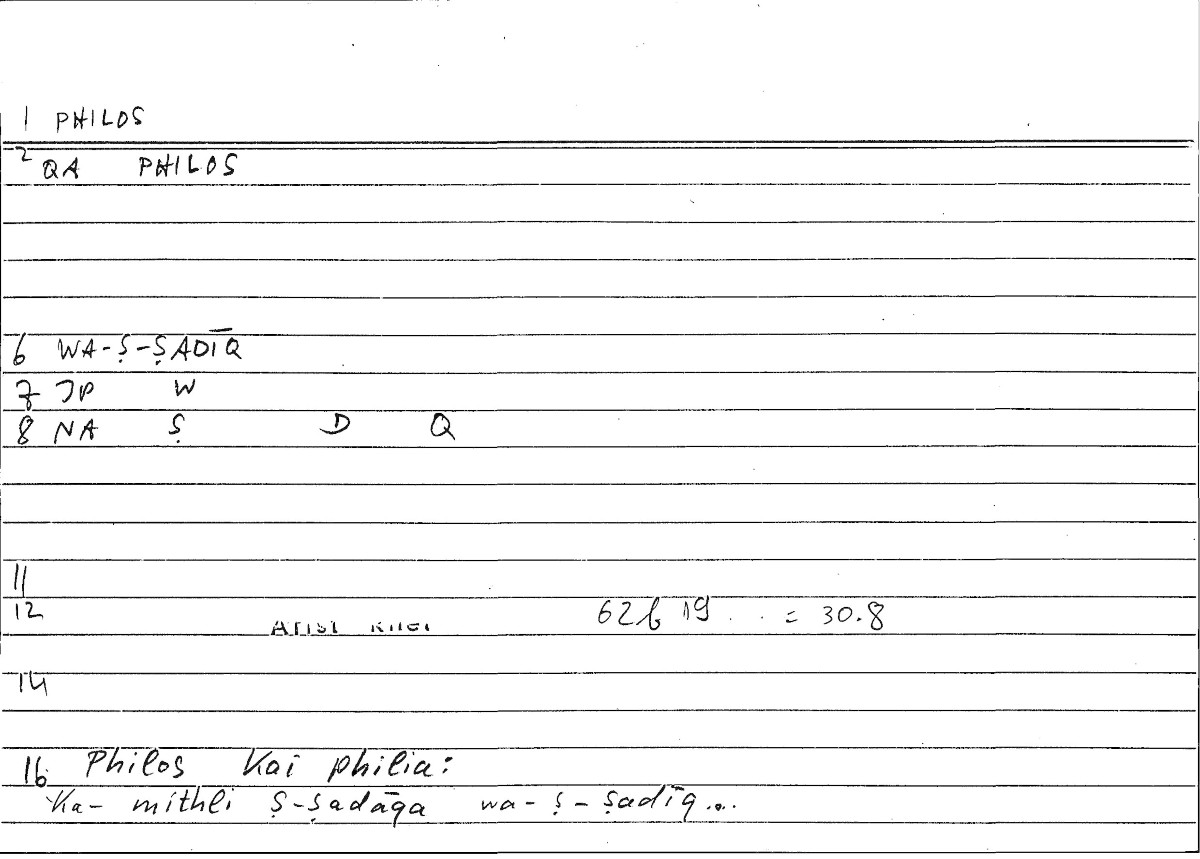 1 PHILOS
2 QA PHILOS
6 WA-Ṣ-ṢADĪQ
7 JP W
8 NA Ṣ D Q
11
12 62b 19 .. = 30.8
14
16 Philos kai philia:
Ka- mithli Ṣ-ṣadāqa wa-ṣ-ṣadīq...